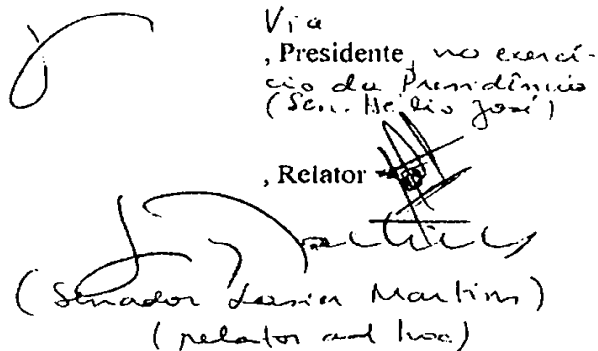 Via
, Presidente, no exercí-
cio da Presidência
(Sen. Hélio José)
, Relator
(Senador Lasier Martins)
(relator ad hoc)